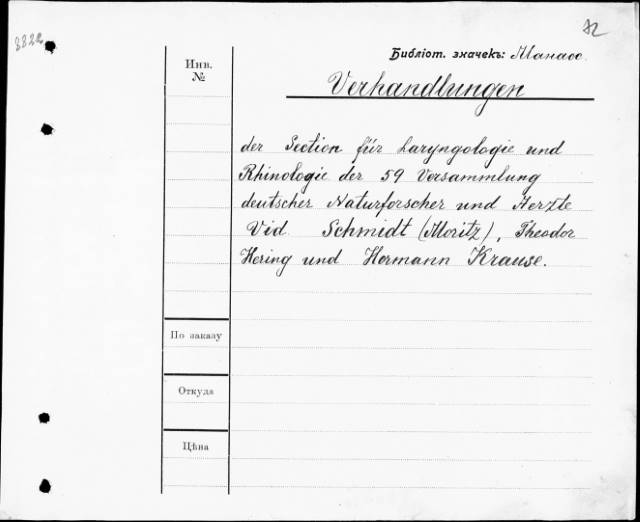 3322
12
Библіот. значекъ: Манасс
Инв.
№
Verhandlungen
der Section für Laryngologie und
Rhinologie der 59 Versammlung
deutscher Naturforscher und Aerzte
Vid. Schmidt (Moritz), Theodor
Hering und Hermann Krause.
По заказу
Откуда
Цѣна